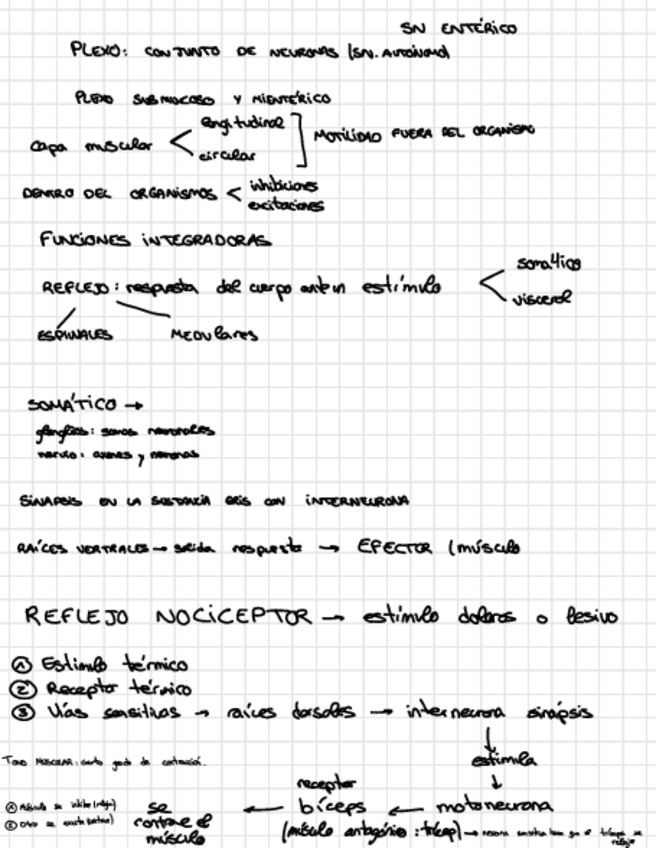 SN ENTÉRICO
PLEXO: CONJUNTO DE NEURONAS (SN. AUTÓNOMO)
PLEXO SUBMUCOSO Y MIENTÉRICO
capa muscular < longitudinal
circular
] MOTILIDAD FUERA DEL ORGANISMO
DENTRO DEL ORGANISMOS < inhibiciones
excitaciones
FUNCIONES INTEGRADORAS
REFLEJO: respuesta del cuerpo ante un estímulo < somático
visceral
ESPINALES MEDULARES
SOMÁTICO →
ganglios: somas neuronales
nervio: axones y neuronas
SINAPSIS EN LA SUSTANCIA GRIS CON INTERNEURONA
RAÍCES VENTRALES → salida respuesta → EFECTOR (músculo
REFLEJO NOCICEPTOR → estímulo doloros o lesivo
① Estímulo térmico
② Receptor térmico
③ Vías sensitivas → raíces dorsales → interneurona sinápsis
↓
estimula
↓
TONO MUSCULAR: cierto grado de contracción.
receptor
se contrae el músculo ← bíceps ← motoneurona
(músculo antagónico: tríceps) →
① Músculo se inhibe (relaja)
② Otro se excita